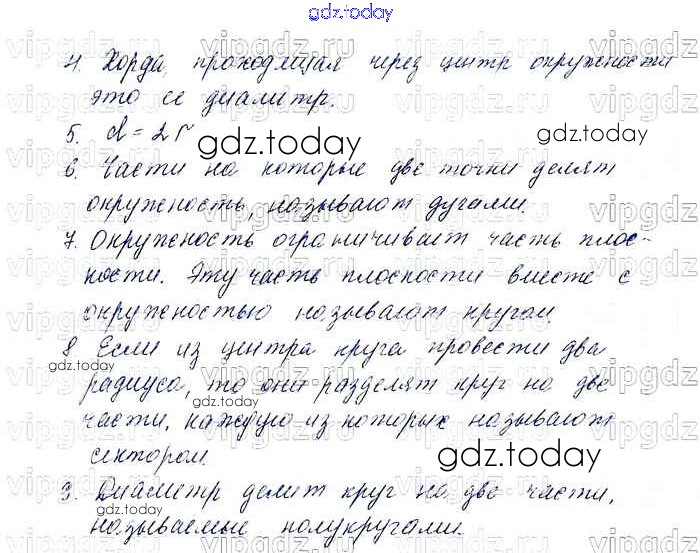 gdz.today
4. Хорда, проходящая через центр окружности
это ее диаметр.
5. d = 2r
6. Части на которые две точки делят
окружность, называют дугами.
7. Окружность ограничивает часть плос-
кости. Эту часть плоскости вместе с
окружностью называют кругом.
8 Если из центра круга провести два
радиуса, то они разделят круг на две
части, каждую из которых называют
сектором.
9. Диаметр делит круг на две части,
называемые полукругами.
gdz.today
gdz.today
gdz.today
gdz.today
gdz.today
vipgdz.ru